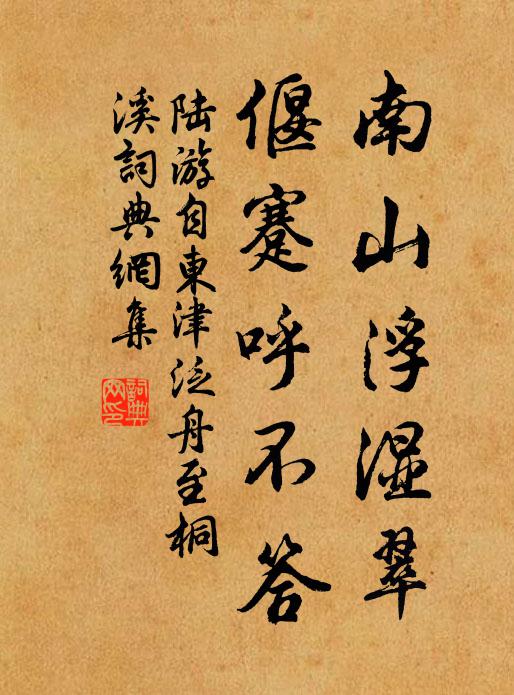 南山浮湿翠
偃蹇呼不答
陆游自東津泛舟至桐
溪詞典網集
詞典
网印